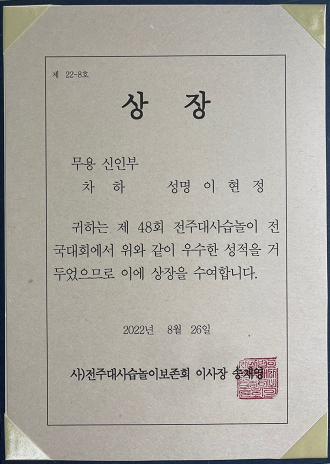 제 22-8호
상 장
무용 신인부
차 하 성명 이 현 정
귀하는 제 48회 전주대사습놀이 전
국대회에서 위와 같이 우수한 성적을 거
두었으므로 이에 상장을 수여합니다.
2022년 8월 26일
사)전주대사습놀이보존회 이사장 송재영